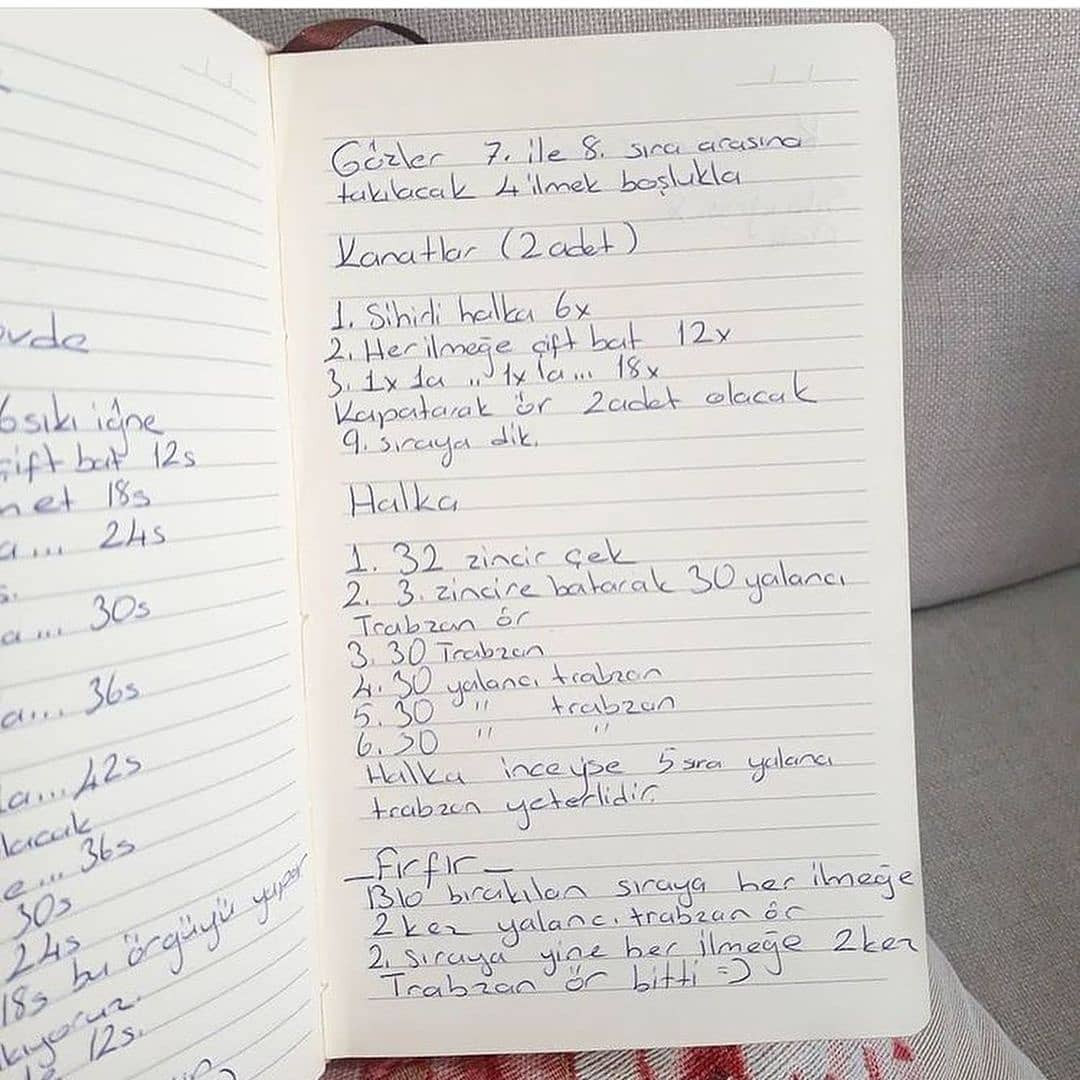 vde
6 sıkı iğne
çift bat 12s
net 18s
a... 24s
s.
a... 30s
a... 36s
a... 42s
lacak
e... 36s
30s
24s
18s bu örgüyü yapar
kıyoruz.
12s.
Gözler 7. ile 8. sıra arasına
takılacak 4 ilmek boşlukla
Kanatlar (2 adet)
1. Sihirli halka 6x
2. Her ilmeğe çift bat 12x
3. 1x 1a .. 1x 1a... 18x
Kapatarak ör 2 adet olacak
9. sıraya dik.
Halka
1. 32 zincir çek
2. 3. zincire batarak 30 yalancı
Trabzan ör
3. 30 Trabzan
4. 30 yalancı trabzan
5. 30 " trabzan
6. 30 " "
Halka inceyse 5 sıra yalancı
trabzan yeterlidir.
_ Fırfır _
Blo bırakılan sıraya her ilmeğe
2 kez yalancı trabzan ör
2. sıraya yine her ilmeğe 2 kez
Trabzan ör bitti =)